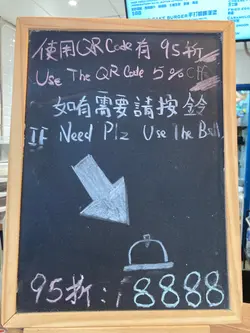 BURGER手打
使用QR Code有95折
Use The QR Code 5%Off
如有需要請按鈴
IF Need Plz Use The Bell
95折:8888